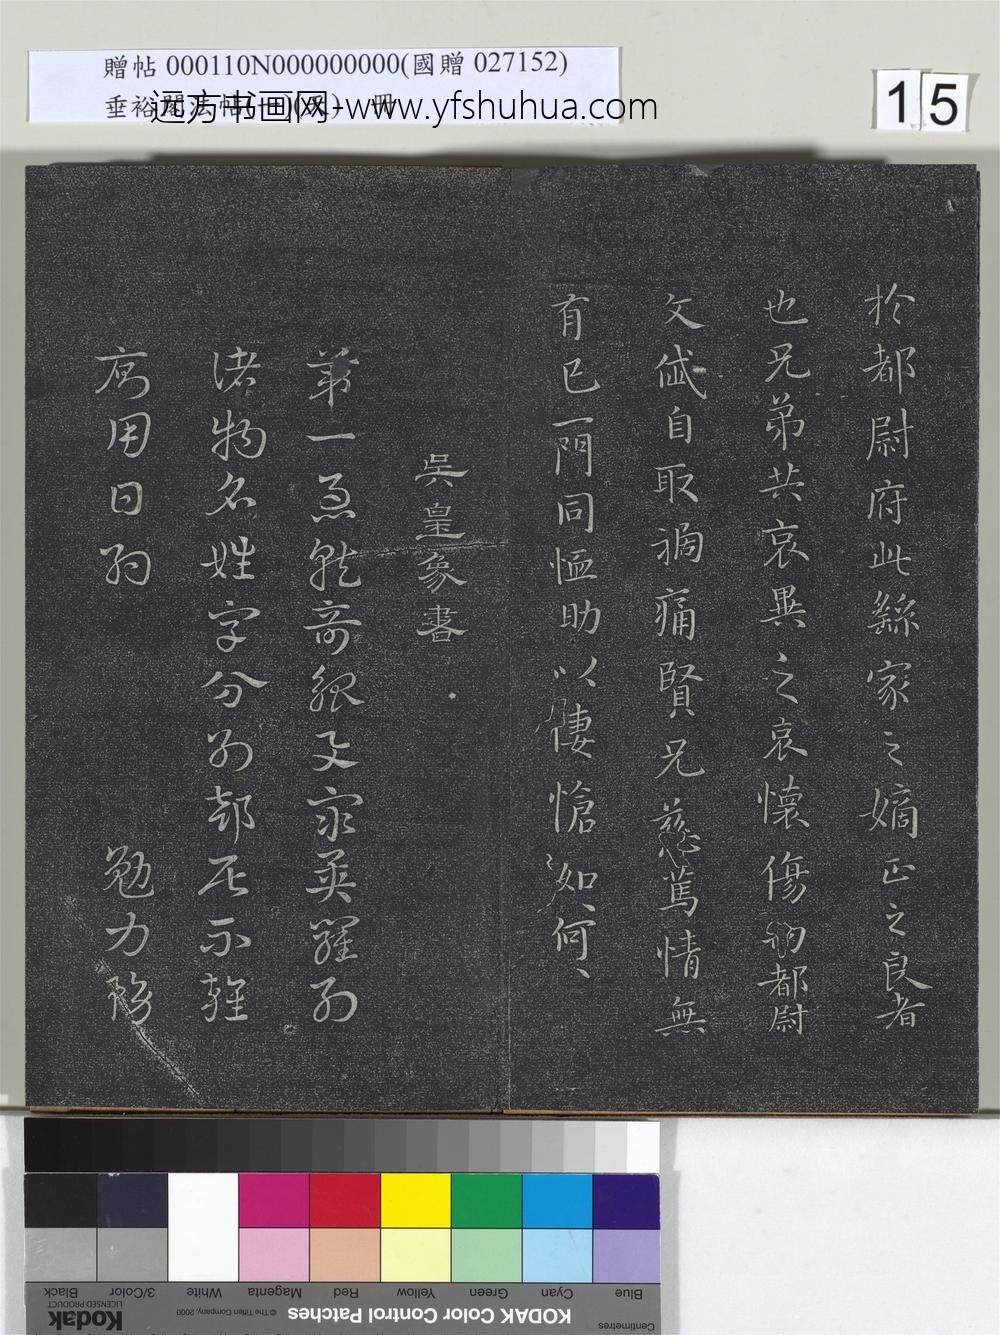 贈帖 000110N000000000(國贈 027152)
垂裕閣法帖 冊
远方书画网-www.yfshuhua.com
15
於都尉府此繇家之嫡正之良者
也兄弟共哀異之哀懷傷切都尉
文俶自取禍痛賢兄慈篤情無
有已一門同恤助以悽愴如何、
吳皇象書
第一急就奇觚與衆異羅列
諸物名姓字分別部居不雜
廁用日約 勉力務
Centimetres
Blue Cyan Green Yellow Red Magenta White 3/Color Black
KODAK Color Control Patches
© The Tiffen Company, 2000
Kodak
LICENSED PRODUCT